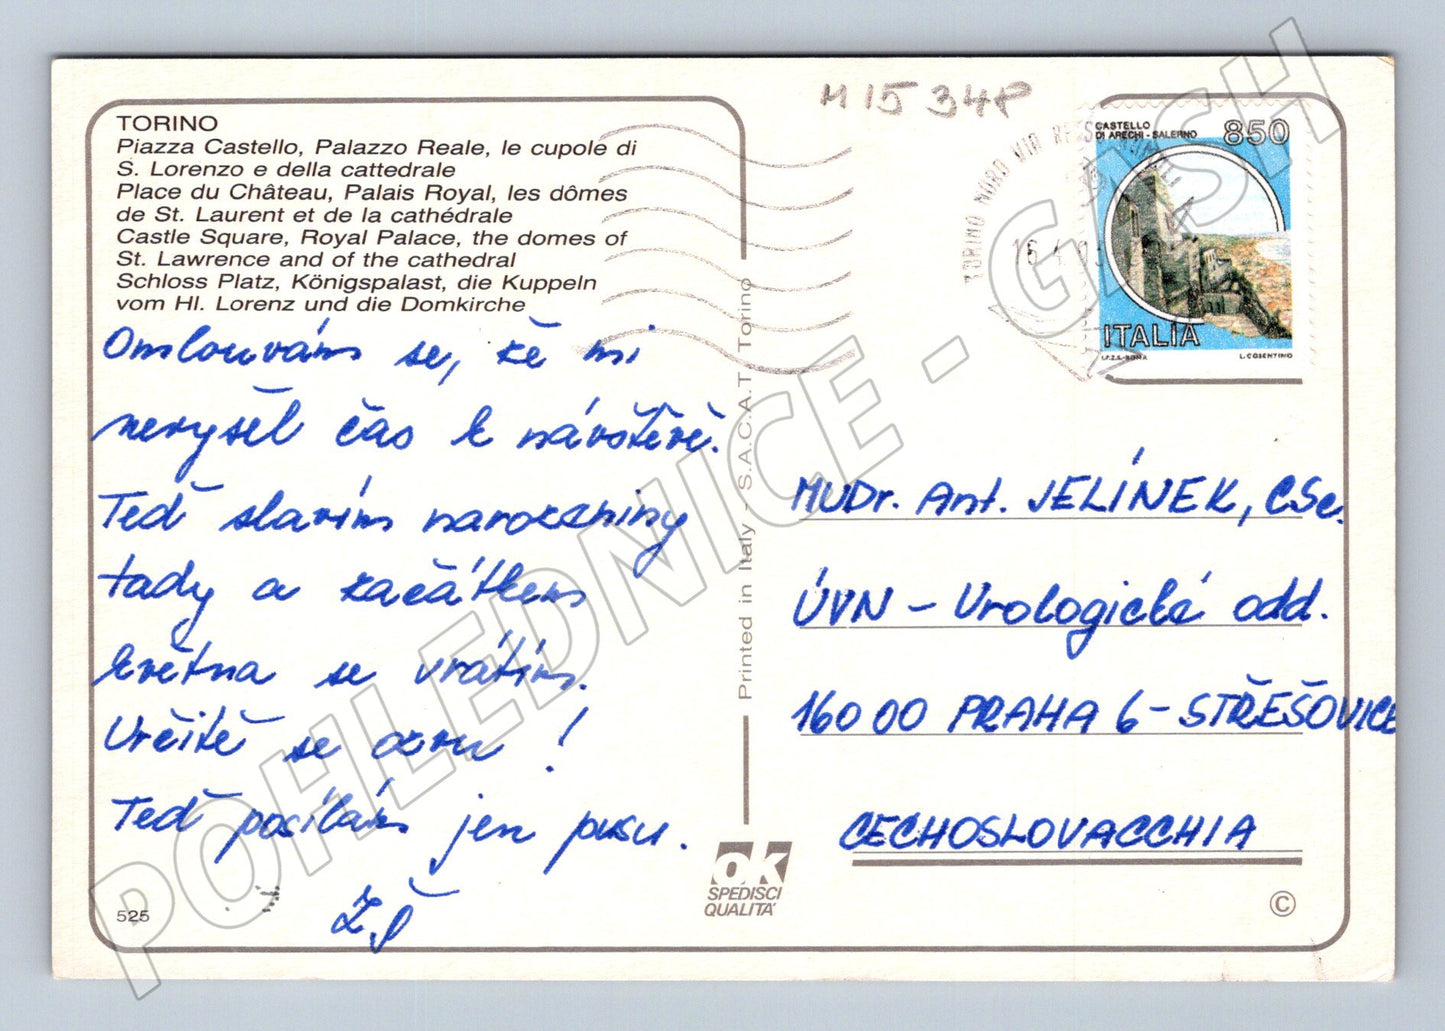 M 15 348
TORINO
Piazza Castello, Palazzo Reale, le cupole di
S. Lorenzo e della cattedrale
Place du Château, Palais Royal, les dômes
de St. Laurent et de la cathédrale
Castle Square, Royal Palace, the domes of
St. Lawrence and of the cathedral
Schloss Platz, Königspalast, die Kuppeln
vom Hl. Lorenz und die Domkirche
Omlouvám se, že mi
nevyšel čas k návštěvě.
Teď slavím narozeniny
tady a začátkem
května se vrátím.
Určitě se ozvu !
Teď posílám jen pusu.
Z.P
525
Printed in Italy - S.A.C.A.T. Torino
OK
SPEDISCI
QUALITA'
TORINO NORD
CASTELLO
DI ARECHI - SALERNO
850
ITALIA
I.P.Z.S. - ROMA
L. COSENTINO
MUDr. Ant. JELÍNEK, CSc.
ÚVN - Urologické odd.
160 00 PRAHA 6 - STŘEŠOVICE
CECHOSLOVACCHIA
©
POHLEDNICE - GASH